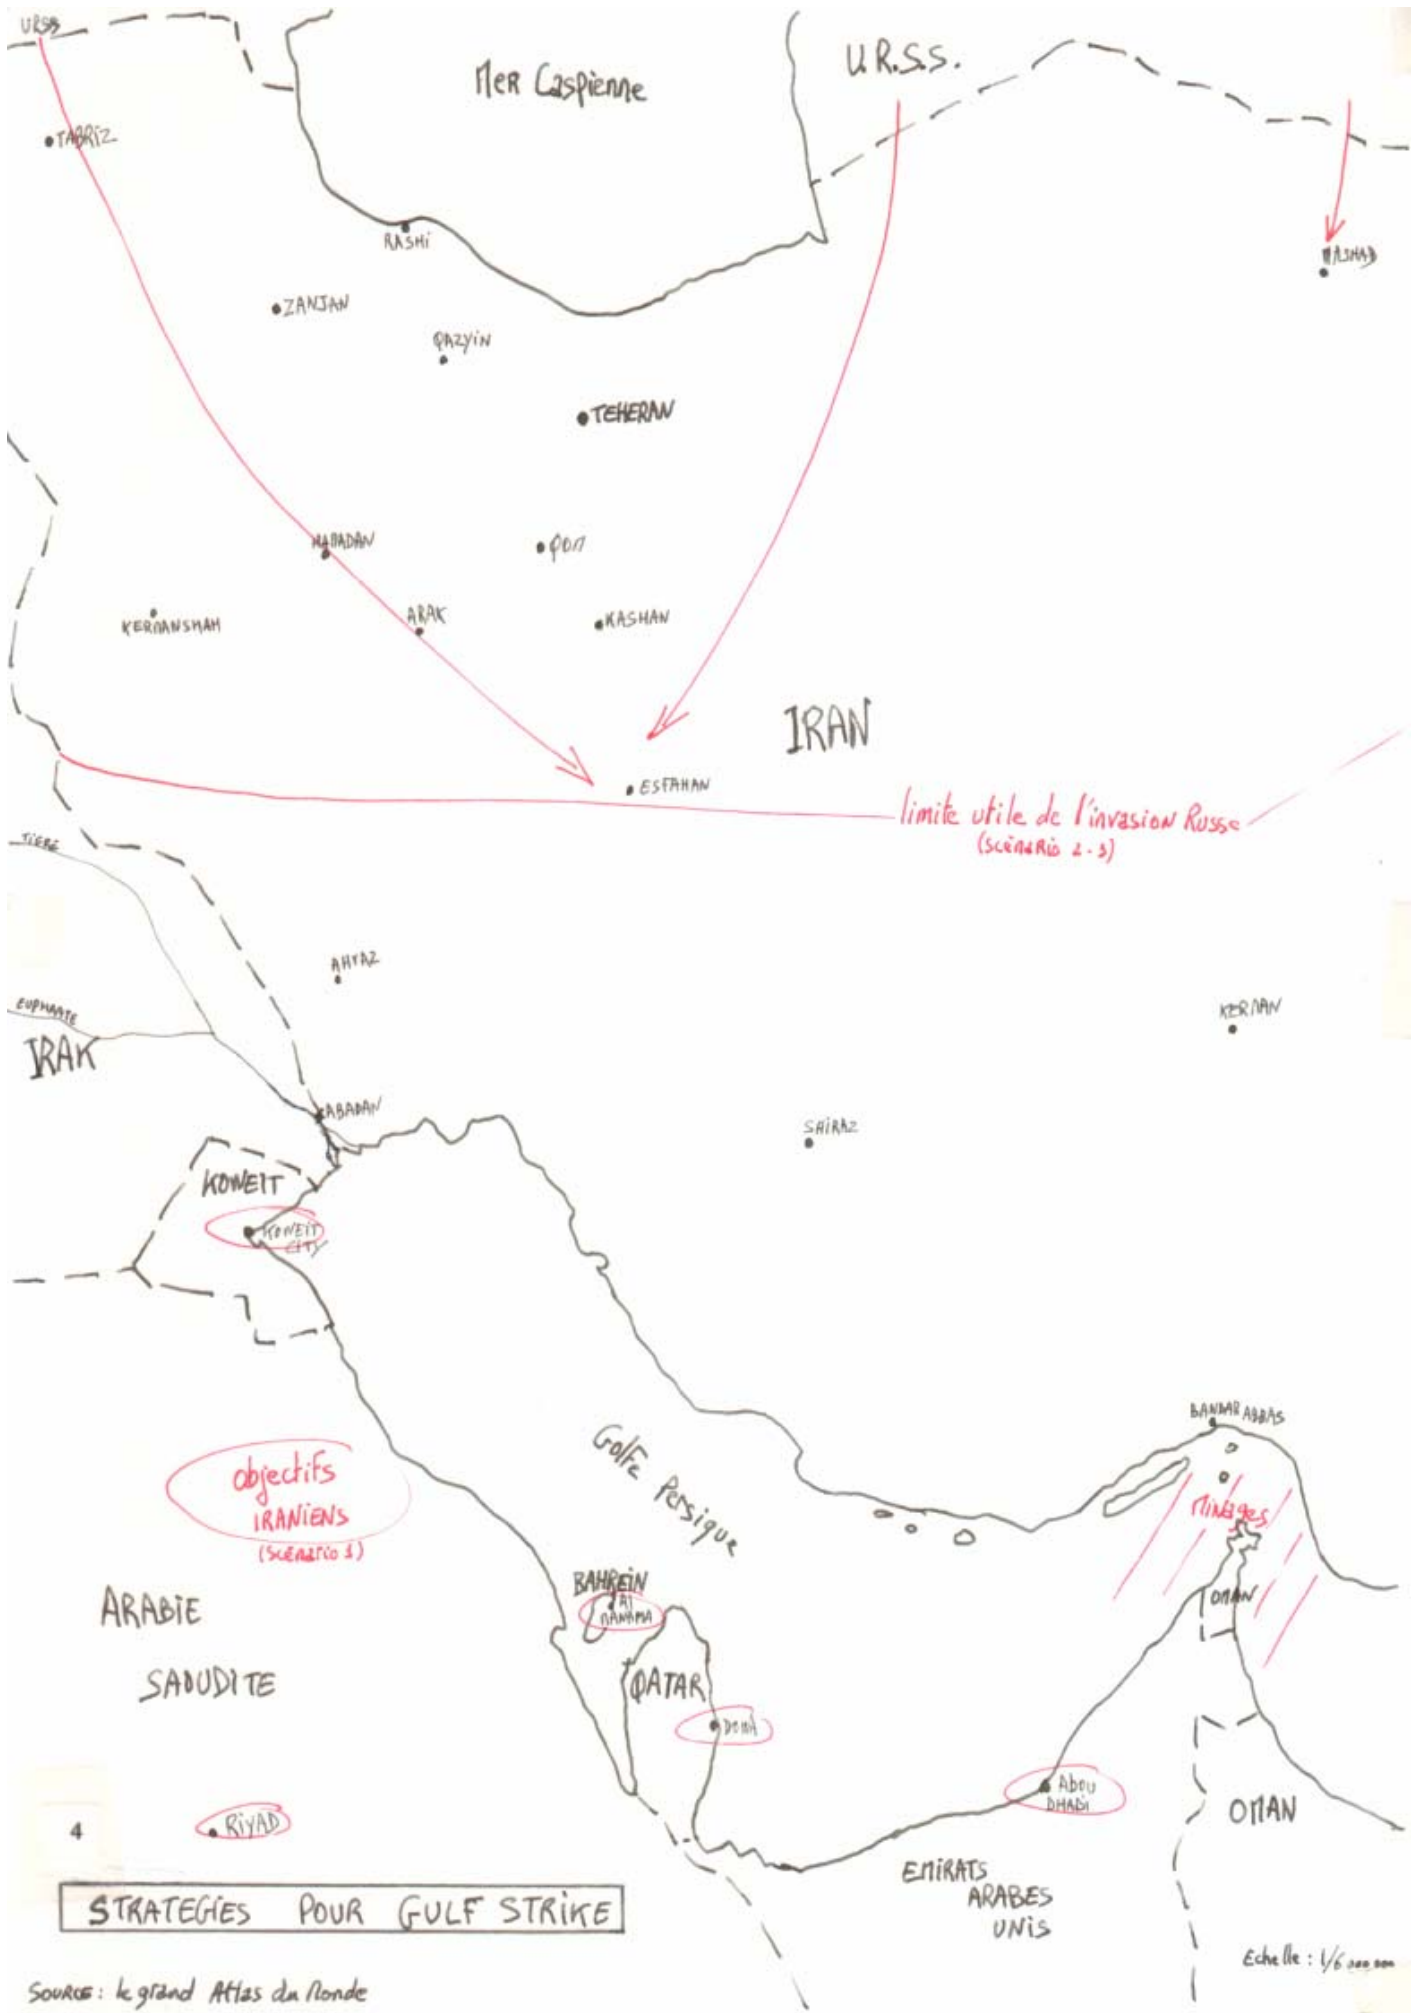 URSS
Mer Caspienne
U.R.S.S.
TABRIZ
RASHI
MASHAD
ZANJAN
QAZYIN
TEHERAN
HAMADAN
QOM
KERMANSHAH
ARAK
KASHAN
IRAN
ESFAHAN
limite utile de l'invasion Russe
(scénario 2-3)
TIGRE
AHVAZ
EUPHRATE
KERMAN
IRAK
ABADAN
SHIRAZ
KOWEIT
KOWEIT
CITY
BANDAR ABBAS
Golfe Persique
objectifs
IRANIENS
(scénario 1)
Minages
BAHREIN
AL
MANAMA
OMAN
ARABIE
SAOUDITE
QATAR
DOHA
ABOU
DHABI
OMAN
RIYAD
4
EMIRATS
ARABES
UNIS
STRATEGIES POUR GULF STRIKE
Echelle : 1/6 000 000
SOURCE : le grand Atlas du Monde